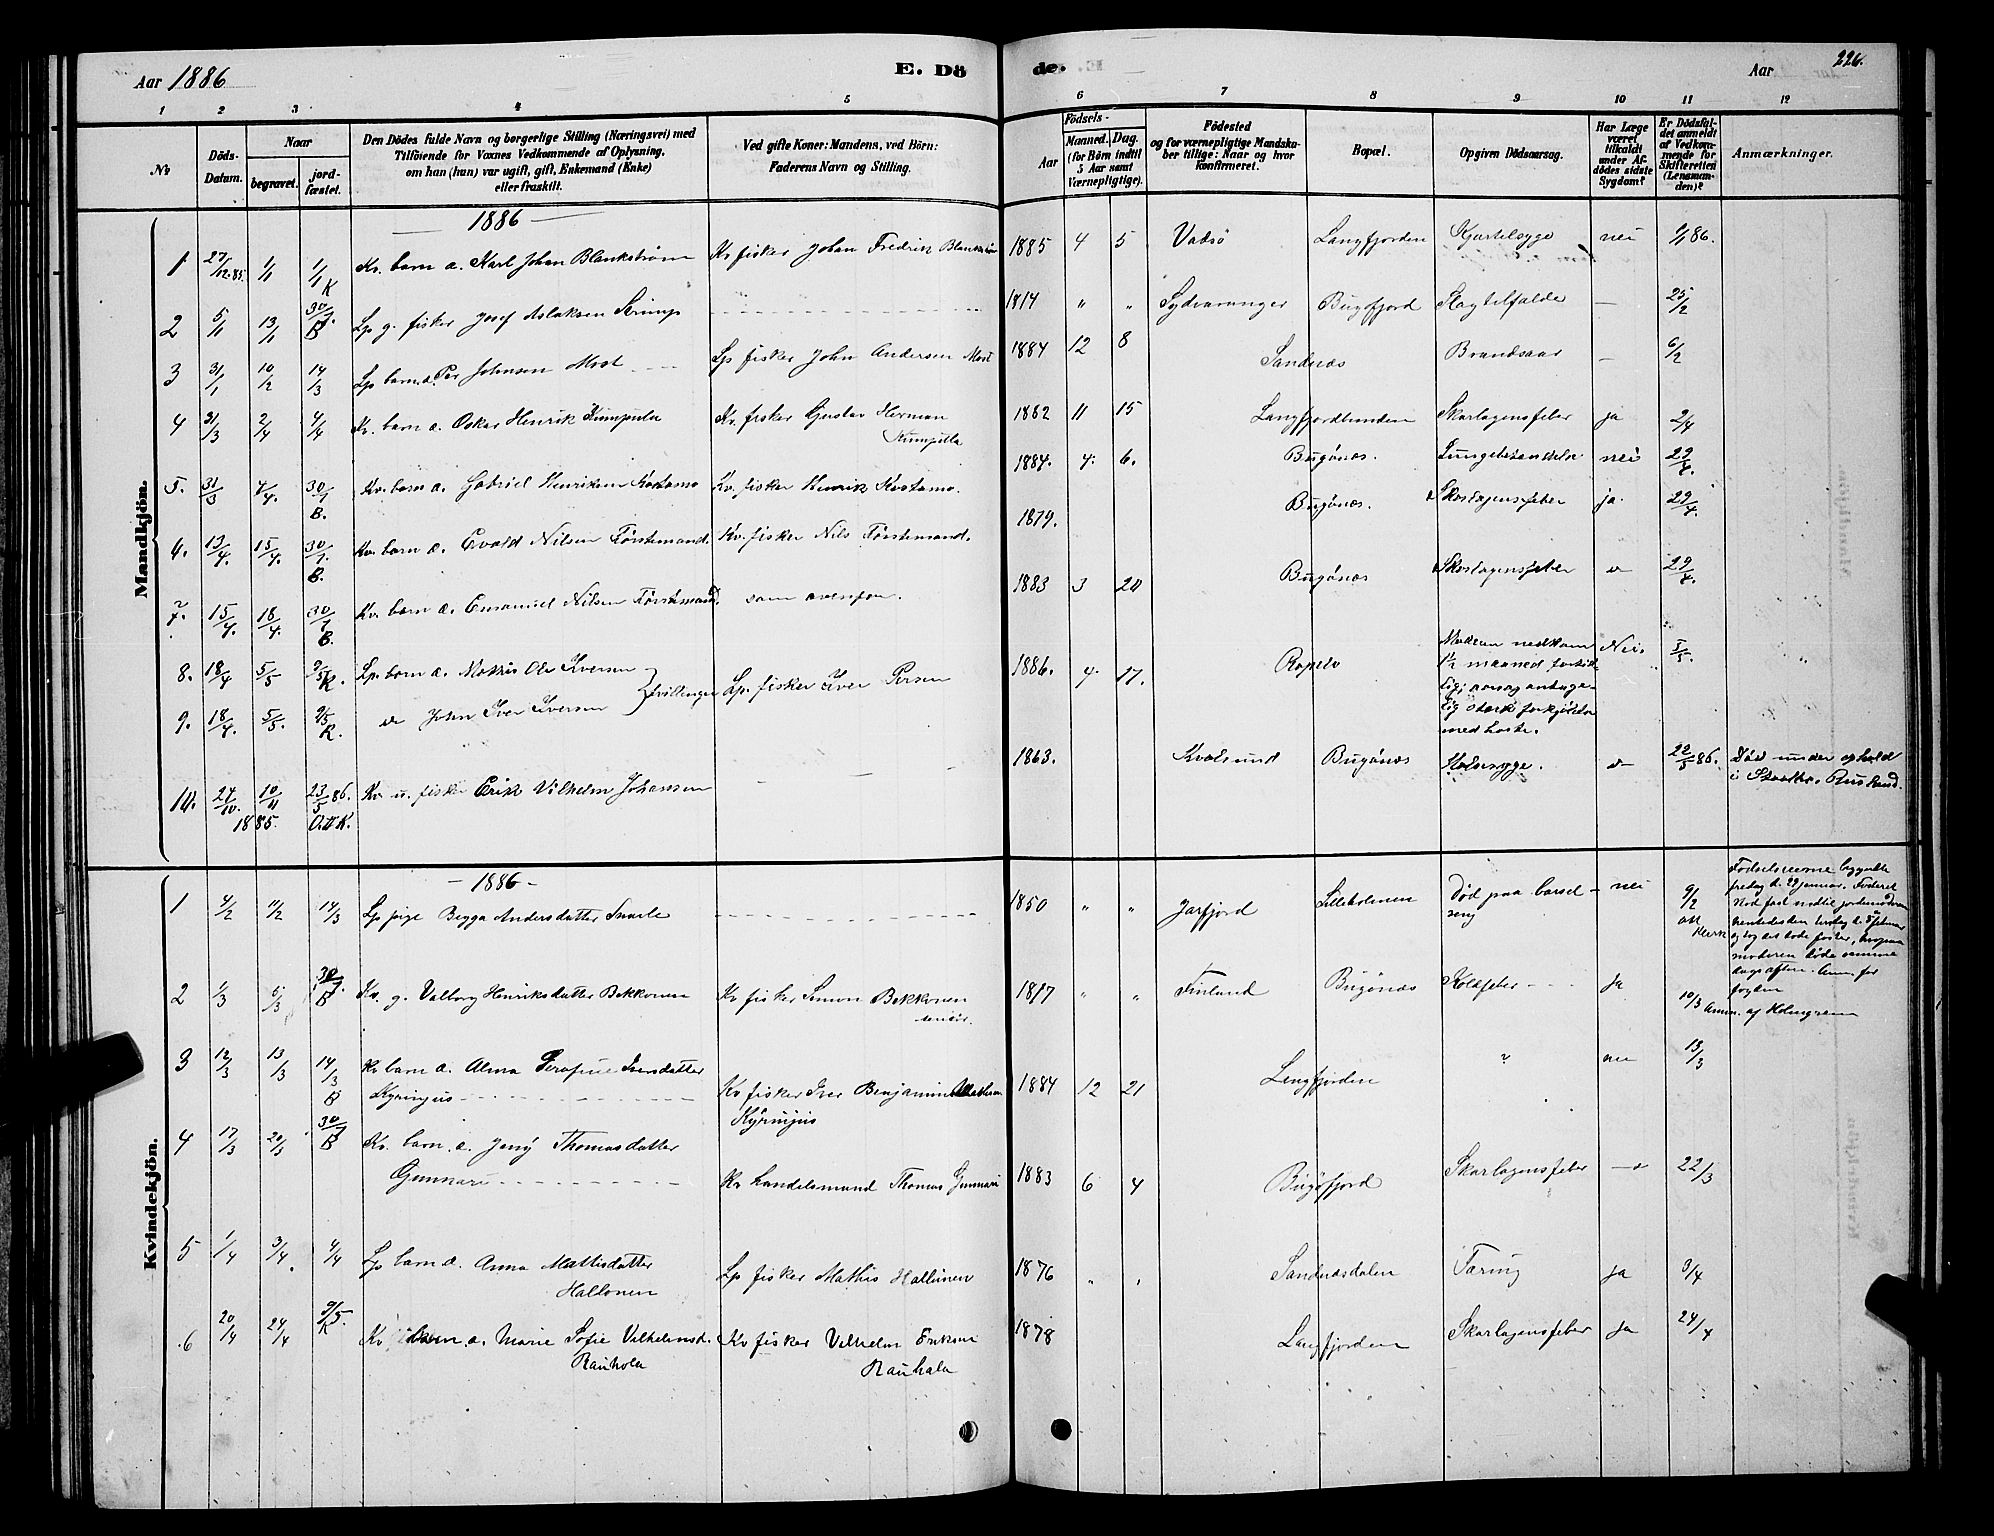 Aar 1886 E. Dö
1 2 3 4 5
No Döds-Datum. Naar begravet. jordfæstet. Den Dödes fulde Navn og borgerlige Stilling (Næringsvei) med Tilföiende for Voxnes Vedkommende af Oplysning, om han (hun) var ugift, gift, Enkemand (Enke) eller fraskilt. Ved gifte Koner: Mandens, ved Börn: Faderens Navn og Stilling.
Mandkjön.
1886
1 27/12.85. 1/1 1/1 K Kv. barn a. Karl Johan Blankström Kv fisker Johan Fredrik Blankström
2 5/1 13/1 30/7. B Lp g. fisker Josef Aslaksen
3 31/1 10/2 14/3 Lp barn a. Per Johnsen Most Lp fisker John Andersen Most
4 31/3 2/4 4/4 Kv. barn a. Oskar Henrik Kumpula Kv. fisker Gustav Herman
Kumpula
5. 31/3 4/4. 30/7 B. Kv. barn a. Gabriel Henriksen Kostamo Kv. fisker Henrik Kostamo.
6. 13/4. 15/4. 30/7. B. Kv. barn a. Evald Nilsen Törstemand. Kv. fisker Nils Törstemand.
7. 15/4. 18/4. 30/7 B. Kv. barn a. Emanuel Nilsen Törstemand. som ovenfor.
8. 18/4 5/5 9/5 K. Lp barn a. Mathis Ole Iversen
tvillinger Lp. fisker Iver Persen
9. 18/4. 5/5. 9/5 K. John Iver Iversen
10. 24/10. 10/11 23/5 86. Kv. u. fisker Erik Vilhelm Johansen
1885. O.II K.
Kvindekjön.
- 1886 -
1 4/2 11/2 14/3 Lp pige Begga Andersdatter
2 1/3 5/3 30/7. B Kv. g. Valborg Henriksdatter Bekkonen Kv fisker Simon Bekkonen
senior.
3 12/3 13/3 14/3 B Kv barn a. Alma Serafine Iversdatter
Kyringius Kv fisker Iver Benjamin
Kyringius
4 17/3 20/3 30/7 B Kv. barn. a. Jeny Thomasdatter
Gunnari Kv handelsmand Thomas Gunnari
5 1/4 3/4. 4/4 Lp barn a. Anna Mattisdatter
Hallonen Lp fisker Mathis Hallonen
6 20/4 24/4 9/5. K Kv barn a. Marie Sofie Vilhelmsd.
Rauhola Kv fisker Vilhelm Eriksen
Rauhala
de. Aar 226.
6 7 8 9 10 11 12
Födsels- Aar Maaned. Dag. (for Börn indtil 5 Aar samt Værnepligtige). Födested og for værnepligtige Mandskaber tillige: Naar og hvor konfirmeret. Bopæl. Opgiven Dödsaarsag. Har Læge været tilkaldt under Afdödes sidste Sygdom? Er Dödsfaldet anmeldt af Vedkommende for Skifteretten (Lensmanden)? Anmærkninger.
1885 4 5 Vadsö Langfjorden Kjertelsyge nei 1/1 86.
1814 " " Sydvaranger Bugöfjord Slagtilfælde — 25/2
1884 12 8 Sandnæs Brandsaar — 6/2
1882 11 15 Langfjordbunden Skarlagensfeber ja 2/4
1884. 4. 6. Bugönæs. Lungebetændelse nei 29/4.
1879. Bugönæs. Skarlagensfeber ja. 29/4.
1883 3 20 Bugönæs Skarlagensfeber 29/4.
1886. 4. 17. Ropelv Modren nedkom Nei. 5/5.
1½ maaned fortid-
lig; aarsag antage-
lig stærk forkjölelse
med hoste.
1863. Kvalsund Bugönæs 22/5 86. Död under ophold
i Rusland.
1850 " " Jarfjord Lilleholmen Död paa barsel- nei 9/2
seng
Födselsveerne begyndte
fredag d. 29 januar.
moderen döde samme
dags aften.
1817 " " Finland Bugönæs Koldfeber ja 10/3 Anm. af Holmgreen
1884 12 21 Langfjorden " nei 13/3
1883 6 4 Bugöfjord Skarlagensfeber 22/3
1876 " " Sandnæsdalen Tæring ja 3/4
1878 Langfjorden Skarlagensfeber ja 24/4